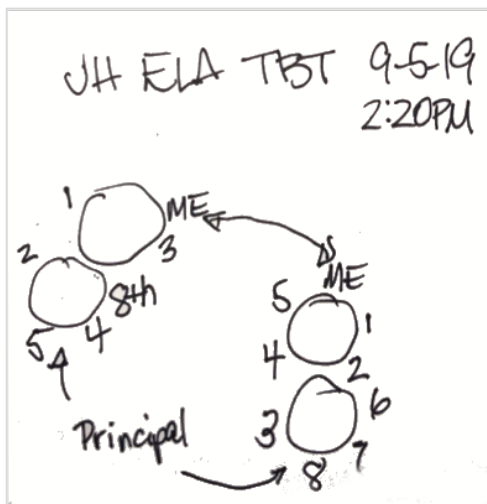 JH ELA TBT 9-5-19
2:20PM
1
ME
3
2
8th
4
5
ME
5
1
4
2
6
3
7
8
Principal